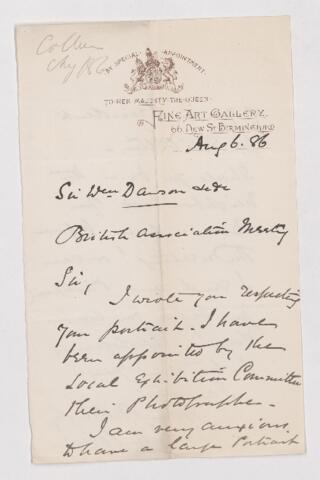 BY SPECIAL APPOINTMENT
TO HER MAJESTY THE QUEEN
FINE ART GALLERY,
66, NEW ST. BIRMINGHAM
Aug 6. 86
Sir Wm Dawson
British Association Meeting
Sir,
I wrote you respecting
your portrait. I have
been appointed by the
Local Exhibition Committee
their Photographer.
I am very anxious
to have a large Portrait